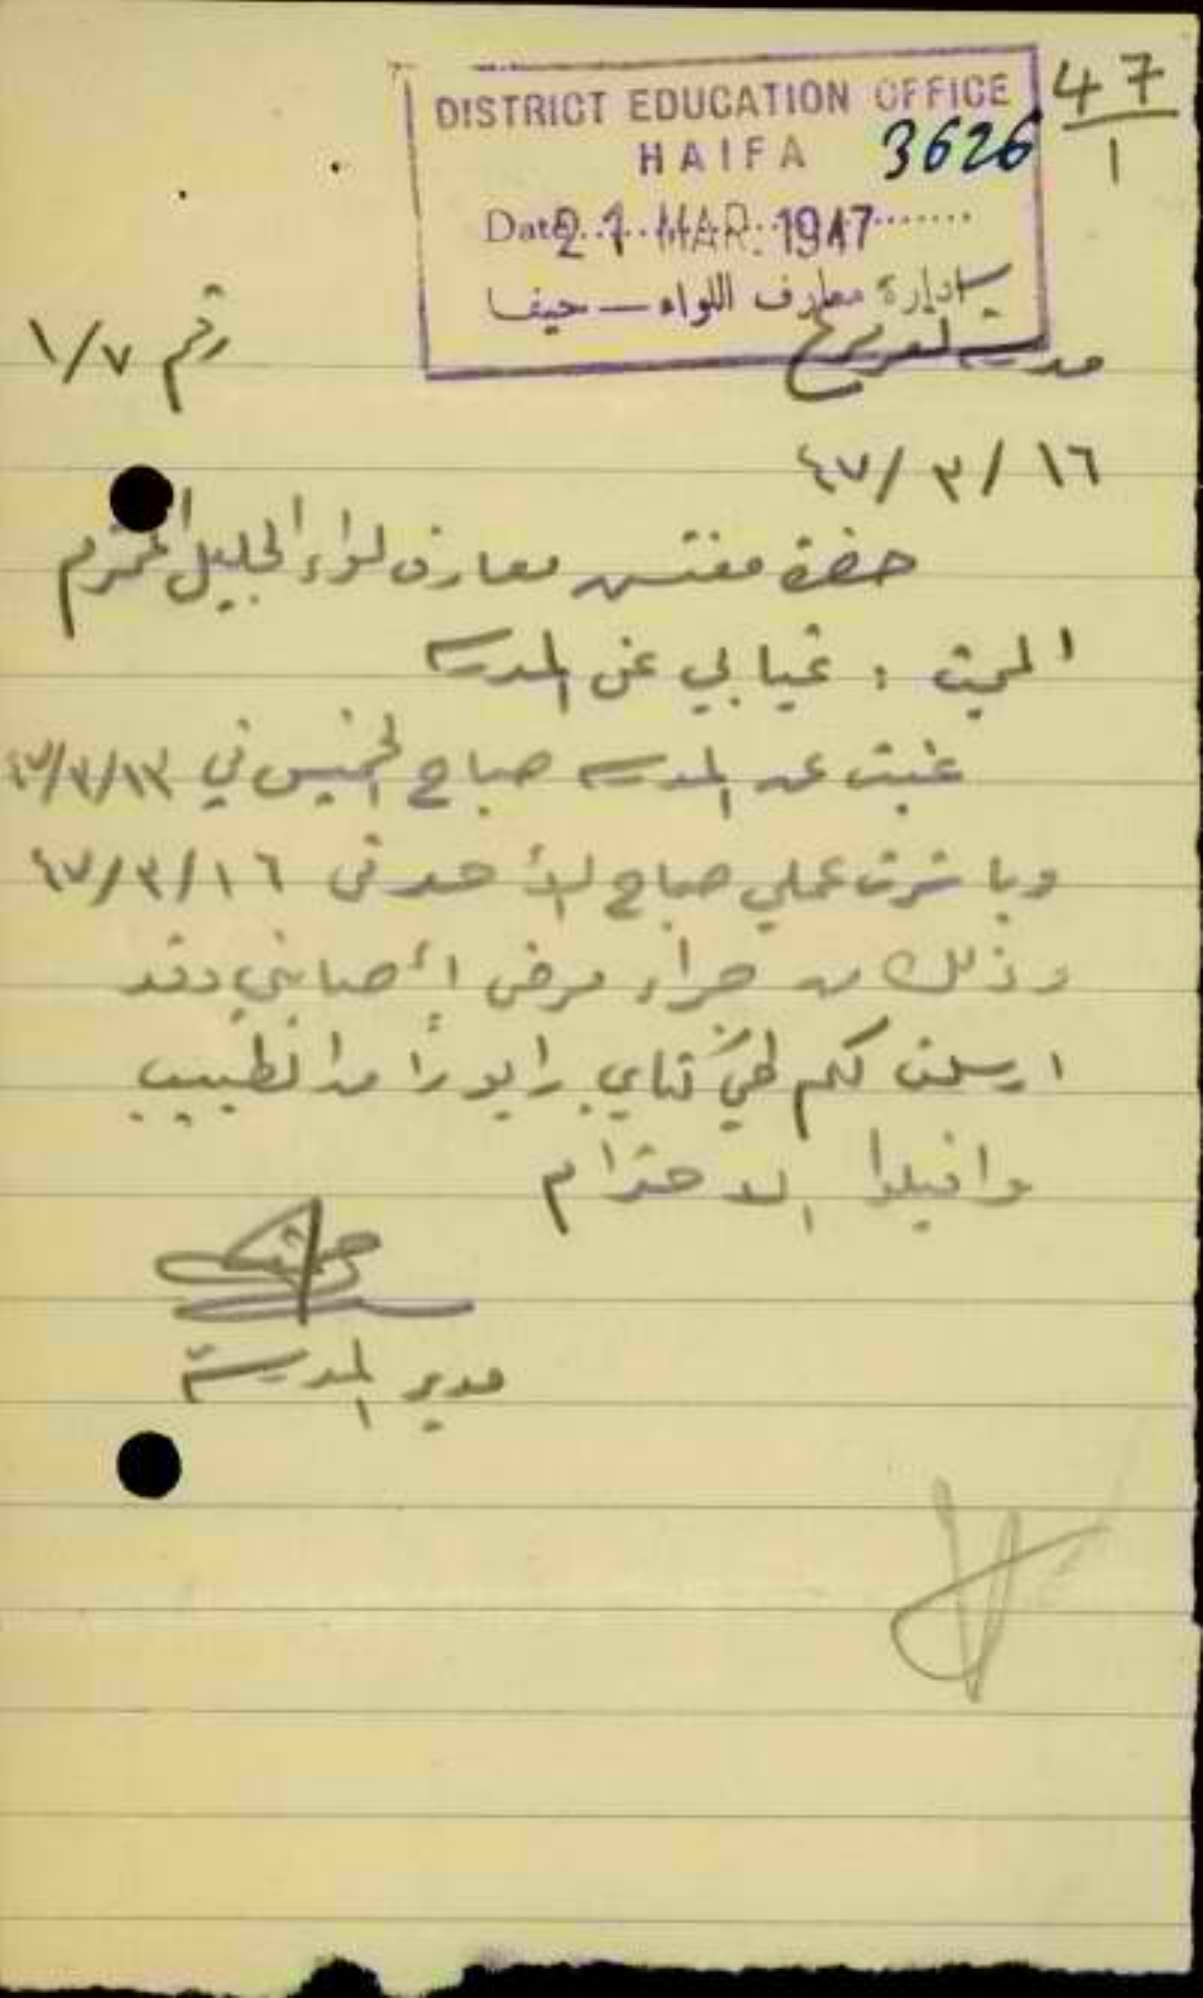 DISTRICT EDUCATION OFFICE
47
HAIFA 3626
1
Date 21 MAR. 1947
ادارة معارف اللواء — حيفا
رقم ١/٧
مدرسة
١٦/٣/٤٧
حضرة مفتش معارف لواء الجليل المحترم
غيابي عن المدرسه
غبت عن المدرسه صباح الخميس في ١٣/٣/٤٧
وباشرت عملي صباح الأحد في ١٦/٣/٤٧
وذلك من جراء مرض أصابني وقد
ارسلت لكم طيّ كتابي رابورًا من الطبيب
واقبلوا الاحترام
مدير المدرسة